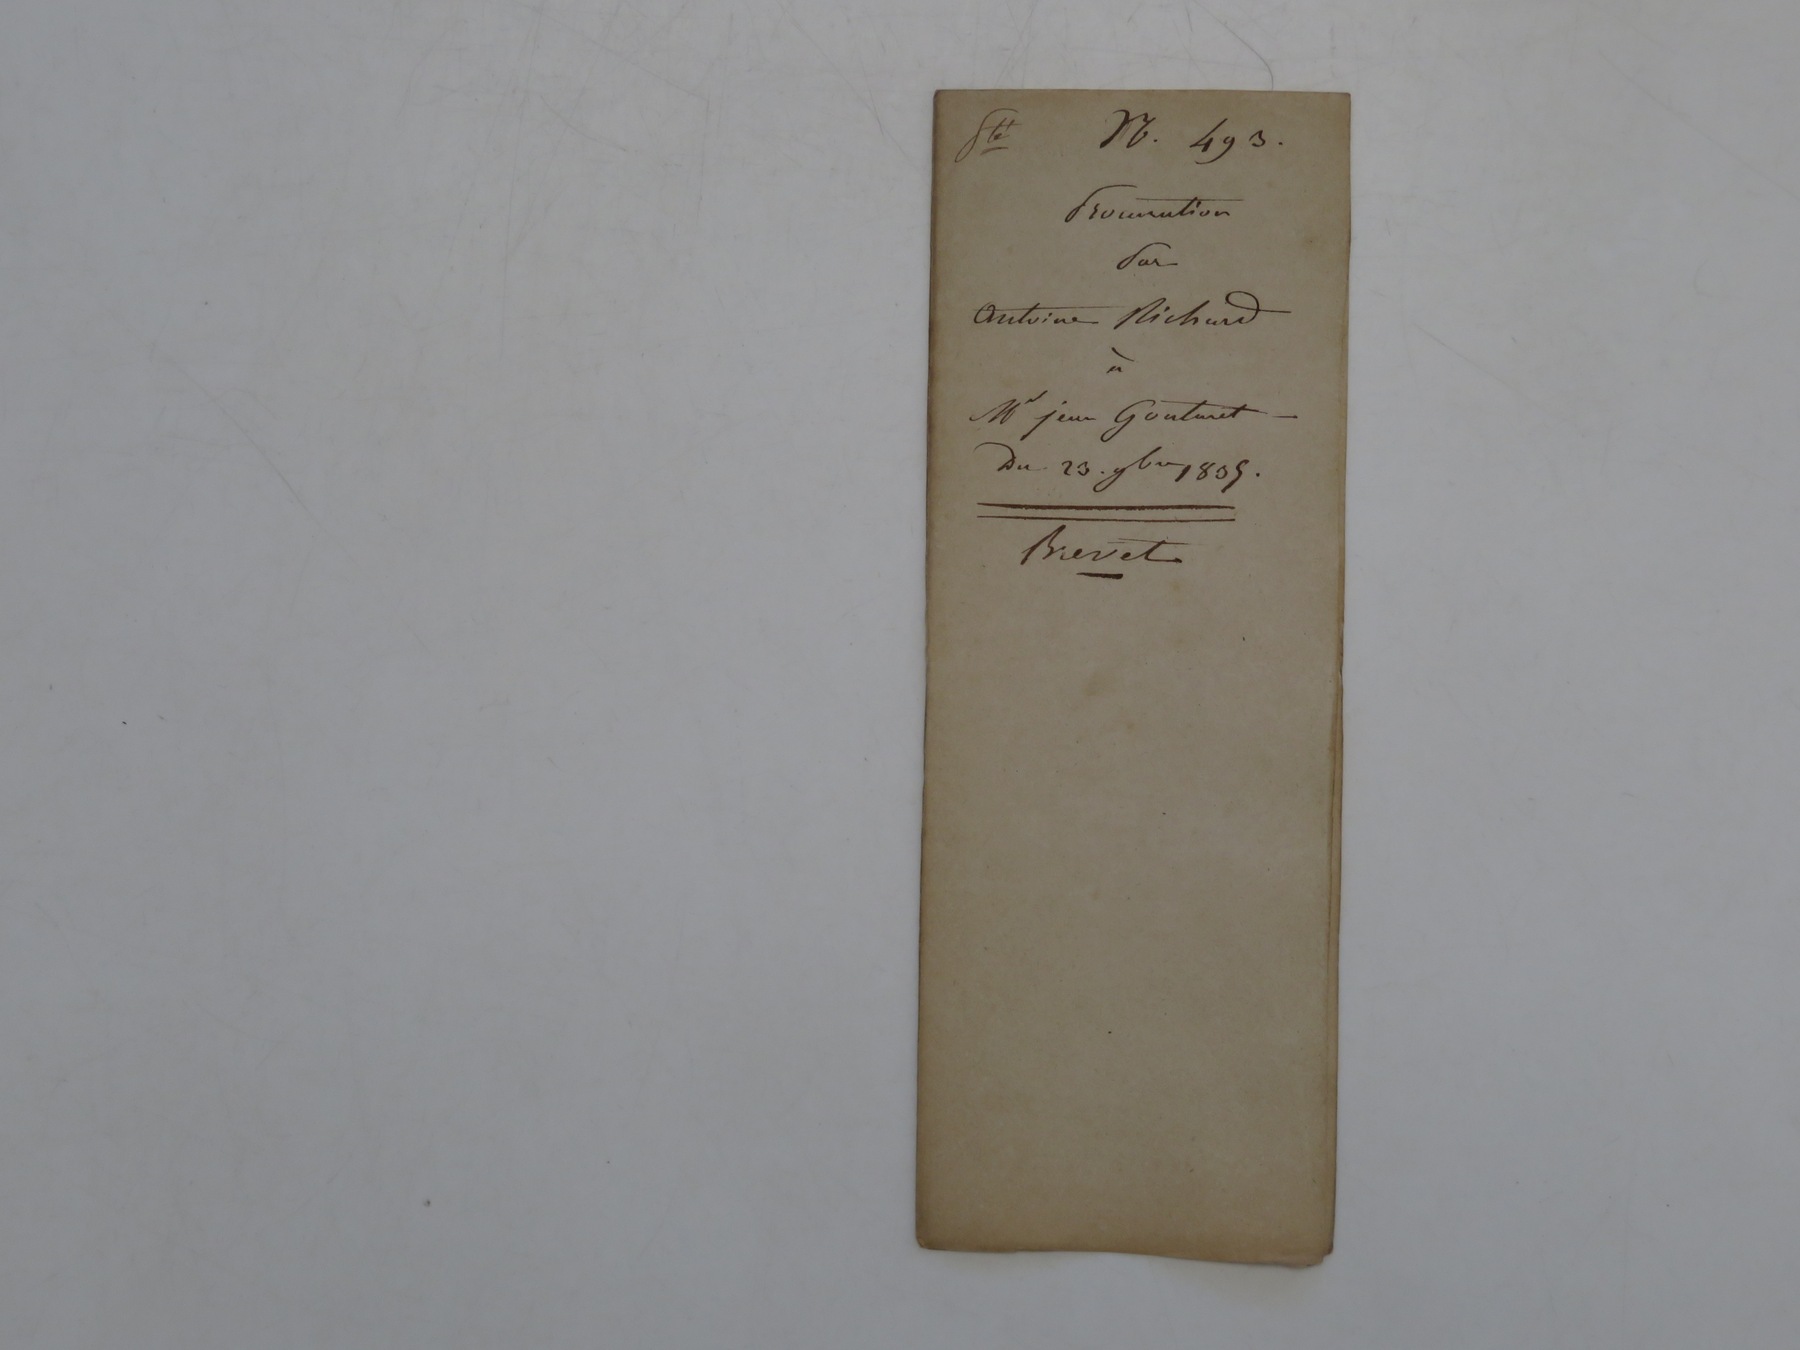 N. 493.
Procuration
Par
Antoine Richard
à
Mr jean Gouturet
Du 23. 9bre 1835.
Brevet